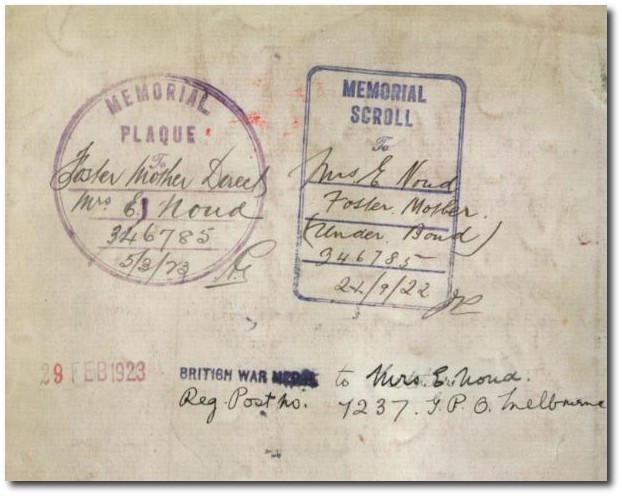 MEMORIAL
PLAQUE
To
Foster Mother Direct
Mrs E. Noud
346785
5/3/23
MEMORIAL
SCROLL
To
Mrs E Noud
Foster. Mother.
(Under. Bond)
346785
21/9/22
28 FEB 1923
BRITISH WAR MEDAL to Mrs. E. Noud.
Reg. Post No. 7237. G.P.O. Melbourne